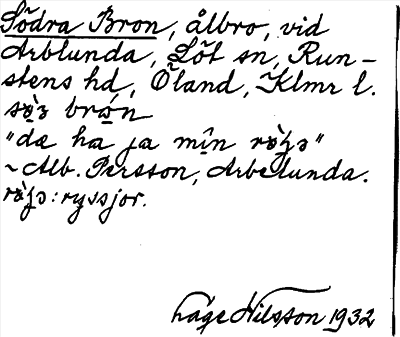 Södra Bron, ålbro, vid
Arblunda, Löt sn, Run-
stens hd, Öland, Klmr l.
"dæ ha ja min
~ Alb. Persson, Arbelunda.
: ryssjor.
hage Nilsson 1932